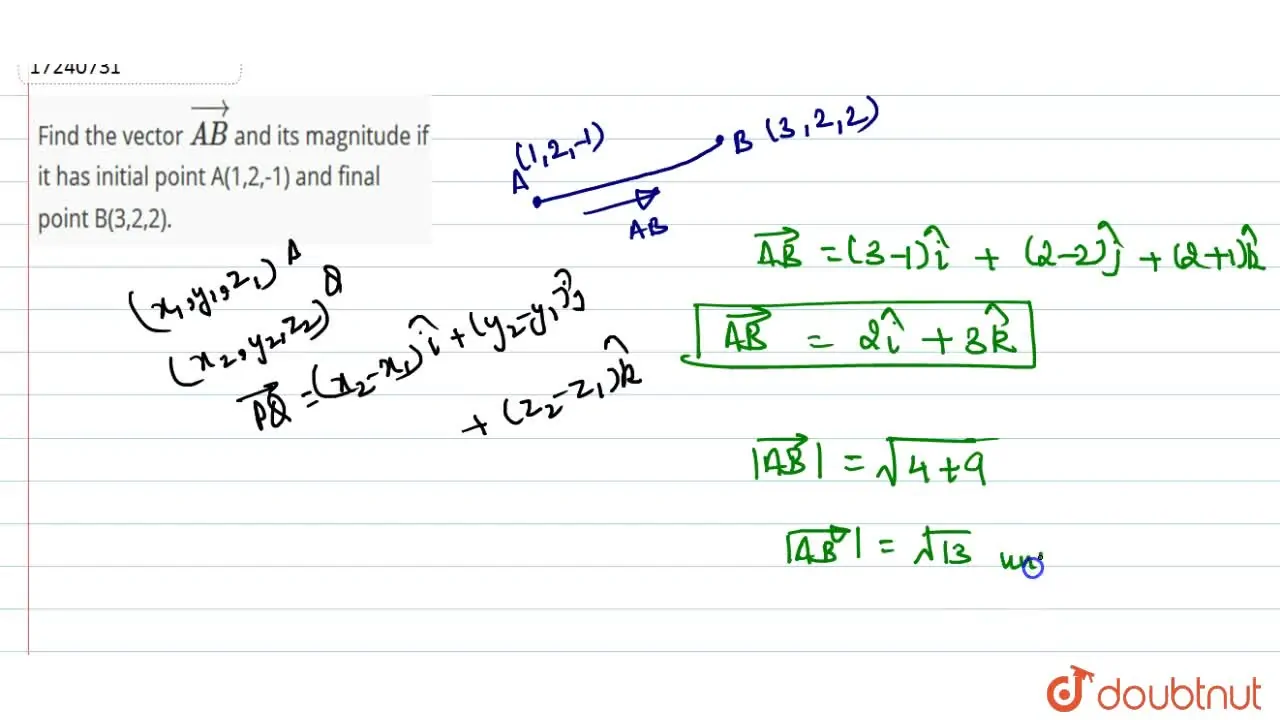 17240731
Find the vector $\overrightarrow{AB}$ and its magnitude if
it has initial point A(1,2,-1) and final
point B(3,2,2).
(1,2,-1)
A
B (3,2,2)
AB
(x₁,y₁,z₁) A
(x₂,y₂,z₂) Q
$\overrightarrow{PQ}$ = (x₂-x₁)î + (y₂-y₁)ĵ
+ (z₂-z₁)k̂
$\overrightarrow{AB}$ = (3-1)î + (2-2)ĵ + (2+1)k̂
$\overrightarrow{AB}$ = 2î + 3k̂
|$\overrightarrow{AB}$| = √(4+9)
|$\overrightarrow{AB}$| = √13
doubtnut